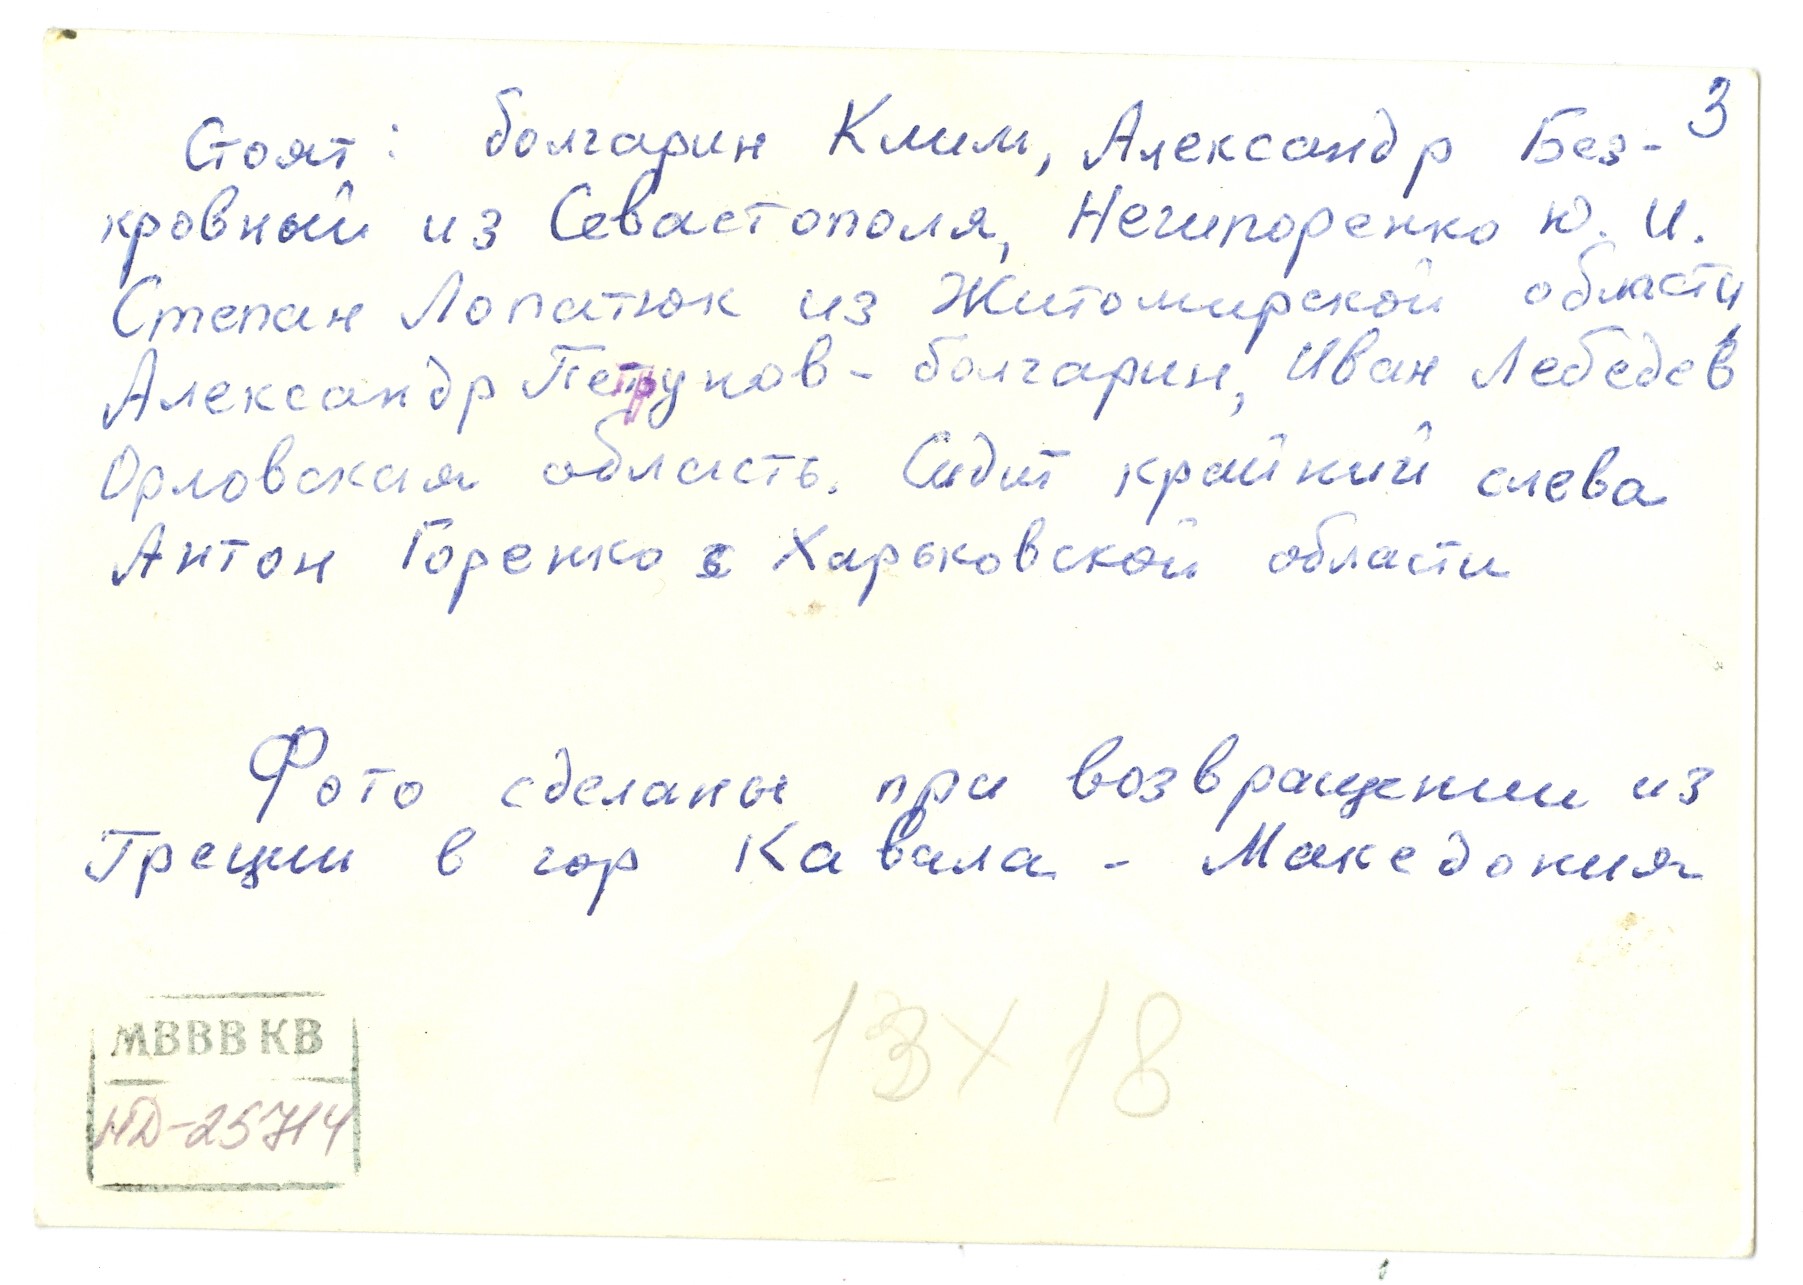 3
Стоят: болгарин Клим, Александр Без-
кровный из Севастополя, Нечипоренко Ю. И.
Степан Лопатюк из Житомирской области,
Александр Петрунов - болгарин, Иван Лебедев
Орловская область. Сидит крайний слева
Антон Горенко с Харьковской области
Фото сделаны при возвращении из
Греции в гор Кавала - Македония
МВВВ КВ
НД-25714
13х18